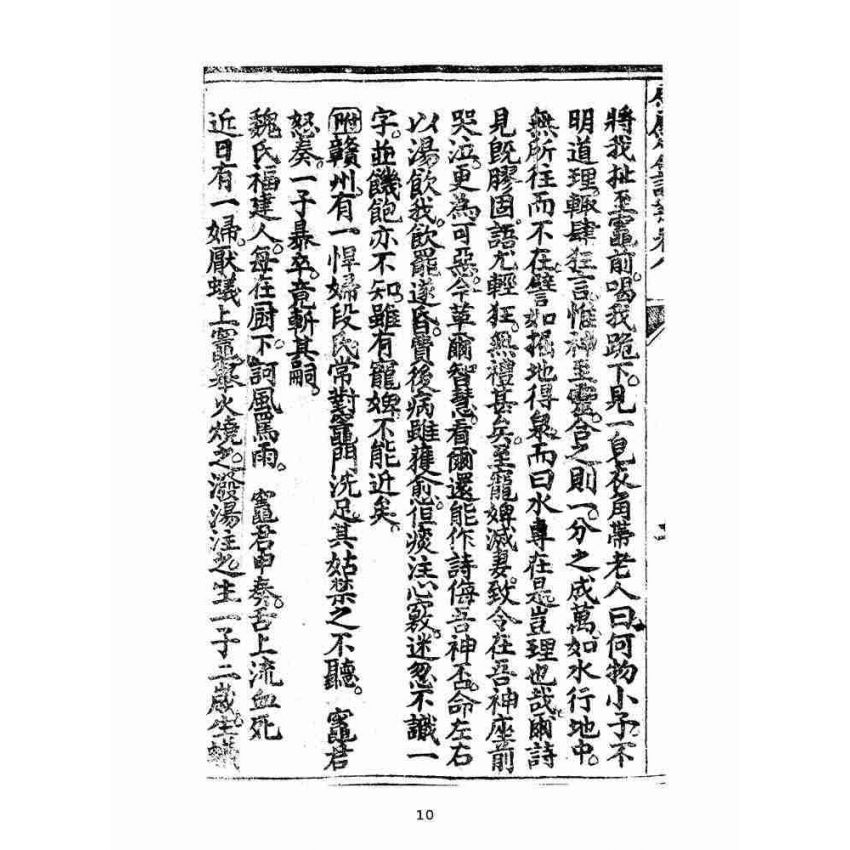 將我扯至竈前。喝我跪下。見一皂衣角帶老人曰。何物小子。不
明道理。輒肆狂言。惟神至靈。合之則一。分之成萬。如水行地中。
無所往而不在。譬如掘地得泉。而曰水專在是。豈理也哉。爾詩
見既膠固。語尤輕狂。無禮甚矣。至寵婢滅妻。致令在吾神座前
哭泣。更為可惡。今革爾智慧。看爾還能作詩侮吾神否。命左右
以湯飲我。飲罷遂昏瞶。後病雖獲愈。但痰注心竅。迷忽不識一
字。並饑飽亦不知。雖有寵婢。不能近矣。
附贛州。有一悍婦段氏。常對竈門洗足。其姑禁之不聽。 竈君
怒奏。一子暴卒。竟斬其嗣。
魏氏福建人。每在厨下。訶風罵雨。 竈君申奏。舌上流血死
近日有一婦。厭蟻上竈。舉火燒之。潑湯注之。生一子二歲。生
10